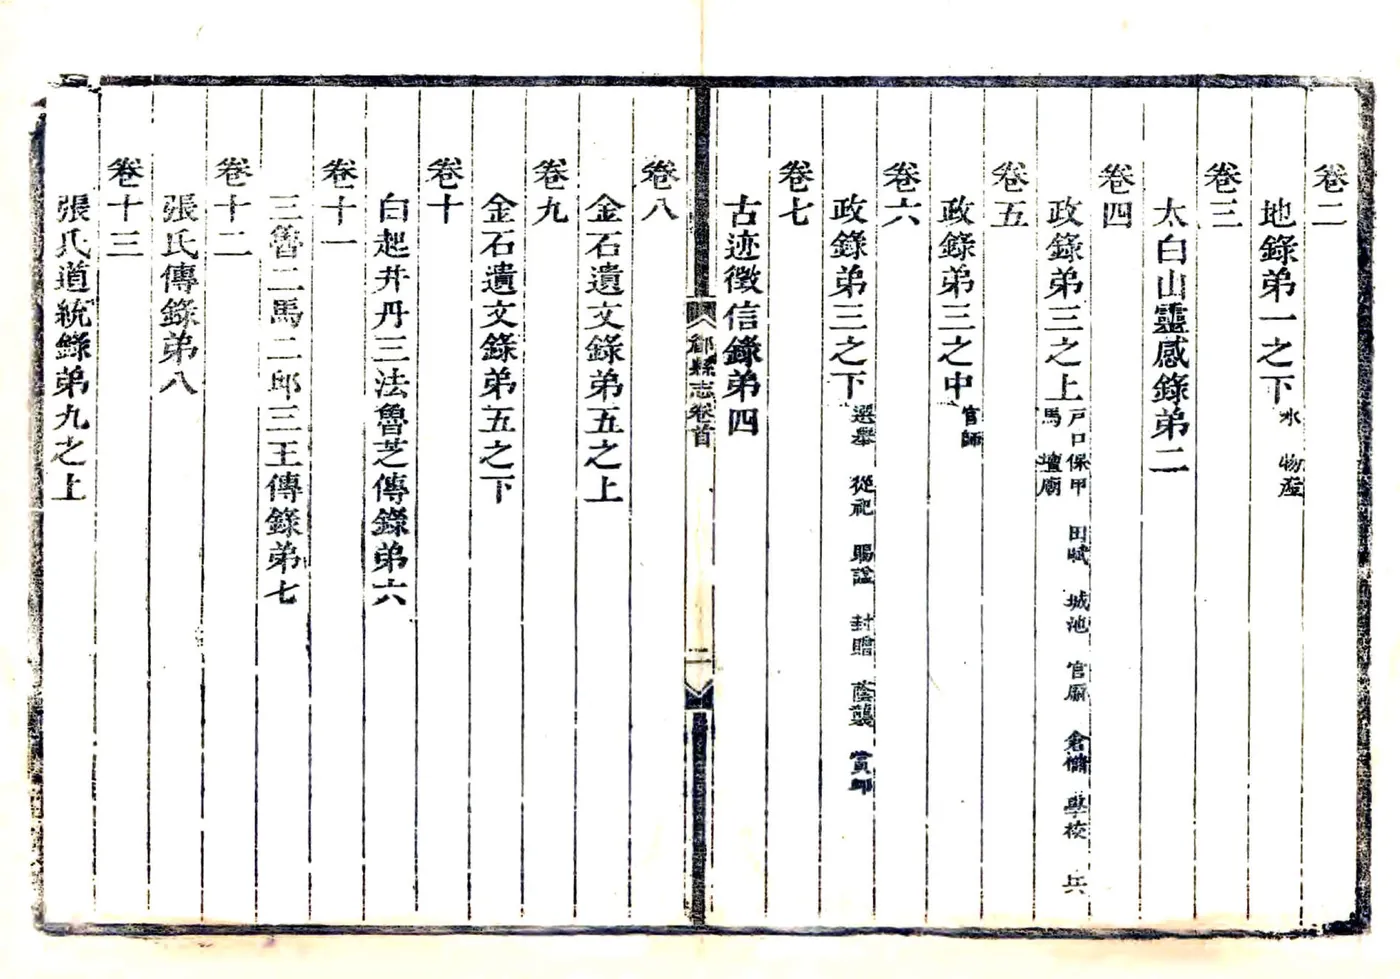 卷二
地錄弟一之下 水 物產
卷三
太白山靈感錄弟二
卷四
政錄弟三之上 戶口保甲 田賦 城池 官廨 倉儲 學校 兵
馬 壇廟
卷五
政錄弟三之中 官師
卷六
政錄弟三之下 選舉 從祀 賜諡 封贈 蔭襲 賞卹
卷七
古迹徵信錄弟四
郿縣志卷首 二
卷八
金石遺文錄弟五之上
卷九
金石遺文錄弟五之下
卷十
白起井丹三法魯芝傳錄弟六
卷十一
三魯二馬二邱三王傳錄弟七
卷十二
張氏傳錄弟八
卷十三
張氏道統錄弟九之上